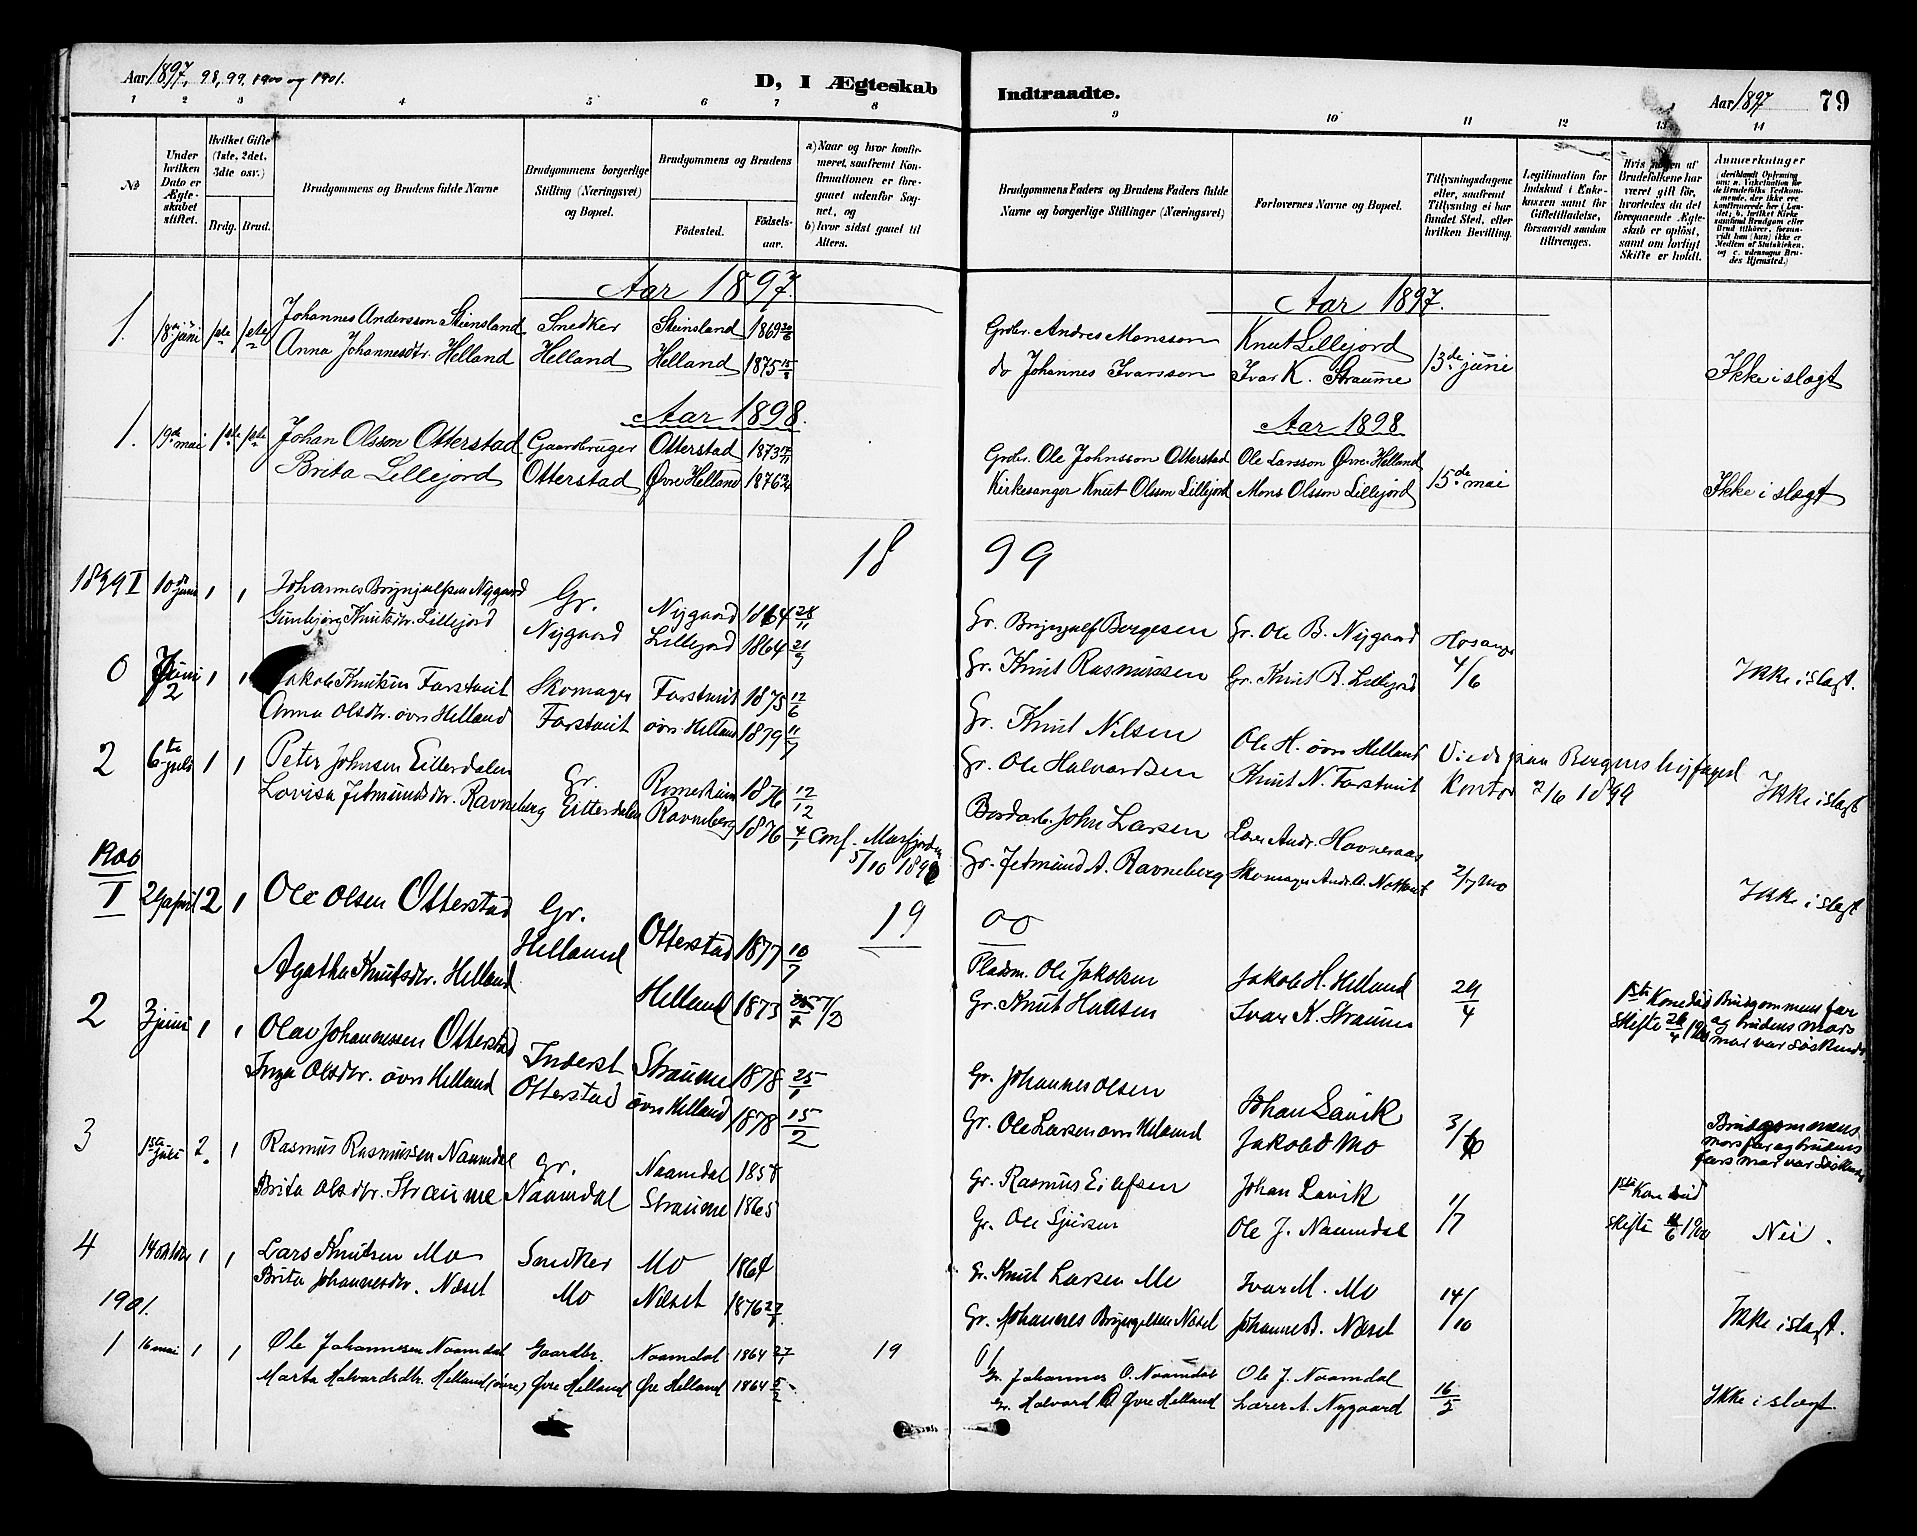 Aar 1897, 98, 99, 1900 og 1901.
D, I Ægteskab Indtraadte.
Aar 1897 79
1 2 3 4 5 6 7 8 9 10 11 12 13 14
No
Under hvilken Dato er Ægteskabet stiftet.
Hvilket Gifte (1ste, 2det, 3die osv.)
Brdg. Brud.
Brudgommens og Brudens fulde Navne
Brudgommens borgerlige Stilling (Næringsvei) og Bopæl.
Brudgommens og Brudens
Födested. Födsels-aar.
a) Naar og hvor konfirmeret, saafremt Konfirmationen er foregaaet udenfor Sognet, og
b) hvor sidst gaaet til Alters.
Brudgommens Faders og Brudens Faders fulde Navne og borgerlige Stillinger (Næringsvei)
Forlovernes Navne og Bopæl.
Tillysningsdagene eller, saafremt Tillysning ei har fundet Sted, efter hvilken Bevilling.
Legitimation for Indskud i Enkekassen samt for Giftetilladelse, forsaavidt saadan tiltrænges.
Hvis nogen af Brudefolkene har været gift för, hvorledes da det foregaaende Ægteskab er oplöst, samt om lovligt Skifte er holdt.
Anmærkninger
Aar 1897. Aar 1897.
1. 18de juni 1ste 1ste Johannes Andersson Steinsland Snedker Steinsland 1869 Grdbr. Andres Monsson Knut Lillejord 13de juni
Anna Johannesdtr. Helland Helland Helland 1875 15/8 do Johannes Ivarsson Ivar K. Straume Ikke i slægt
Aar 1898. Aar 1898
1. 19de mai 1ste 1ste Johan Olsson Otterstad Gaardbruger Otterstad 1873 Grdbr. Ole Johnsson Otterstad Ole Larsson Övre Helland 15de mai
Brita Lillejord Otterstad Övre Helland 1876 Kirkesanger Knut Olsson Lillejord Mons Olsson Lillejord Ikke i slægt
18 99
1899 I 10de juni 1 1 Johannes Brynjulfsen Nygaard Gr. Nygaard 1864 28/11 Gr. Brynjulf Bergesen Gr. Ole B. Nygaard Hosanger
Gunbjørg Knutsdtr. Lillejord Nygaard Lillejord 1864 21/9 Gr. Knut Rasmussen Gr. Knut R. Lillejord 4/6 Ikke i slægt.
0 Juni 2 1 1 Jakob Knutsen Farstveit Skomager Farstveit 1875 12/6 Gr. Knut Nilsen Ole H. övre Helland Viede fraa Bergens byfoged
Anna Olsdtr. övre Helland Farstveit övre Helland 1879 11/7 Gr. Ole Halvardsen Knut N. Farstveit Kontor 2/6 1899 Ikke i slægt
2 6te juli 1 1 Peter Johnsen Eitterdalen Gr. Romerheim 1876 12/12 Bordarb. John Larsen Lærer Andr. Hovneraas
Lovisa Jetmundsdtr. Ravneberg Eitterdalen Ravneberg 1876 4/1 Conf. Masfjorden 5/10 1890 Gr. Jetmund A. Ravneberg Skomager Andr. A. 2/7 Mo Ikke i slægt
1900 19 00
I 29 april 2 1 Ole Olsen Otterstad Gr. Otterstad 1877 10/7 Pladsm. Ole Jakobsen Jakob H. Helland 29/4 1ste Kone død Brudgommens far
Agatha Knutsdtr. Helland Helland Helland 1873 Gr. Knut Ivar K. Straume Skifte 26/4 1900 og brudens mors mor var Søskende
2 3 juni 1 1 Olav Johannessen Otterstad Inderst Straume 1878 25/1 Gr. Johannes Olsen Johan Lavik 3/6
Inga Olsdtr. övre Helland Otterstad övre Helland 1878 15/2 Gr. Ole Larsen övre Helland Jakob O Mo Brudgommens mors far og brudens fars mor var Søskende
3 1ste juli 2. 1 Rasmus Rasmussen Naamdal Gr. Naamdal 1858 Gr. Rasmus Eilefsen Johan Lavik 1/7 1ste Kone død
Brita Olsdtr. Straume Naamdal Straume 1865 Gr. Ole Sjursen Ole J. Naamdal Skifte 1900 Nei.
4 14 oktober 1 1 Lars Knutsen Mo Snedker Mo 1864 Gr. Knut Larsen Mo Ivar M. Mo 14/10
Brita Johannesdtr. Næset Mo Næset 1876 27/7 Gr. Johannes Brynjulfsen Næset Johannes B. Næset Ikke i slægt.
1901. 19 01
1 16 mai 1 1 Ole Johannessen Naamdal Gaardbr. Naamdal 1864 27/1 Gr. Johannes O. Naamdal Ole J. Naamdal 16/5
Marta Halvardsdtr. Helland (övre) Øvre Helland Øvre Helland 1864 5/2 Gr. Halvard O Øvre Helland Lærer A. Nygaard Ikke i slægt.